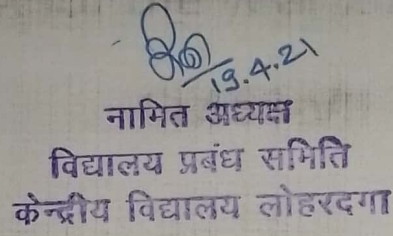 19.4.21
नामित अध्यक्ष
विद्यालय प्रबंध समिति
केन्द्रीय विद्यालय लोहरदगा